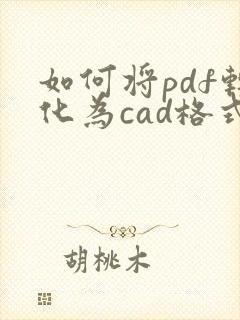 如何将pdf转
化为cad格式
胡桃木